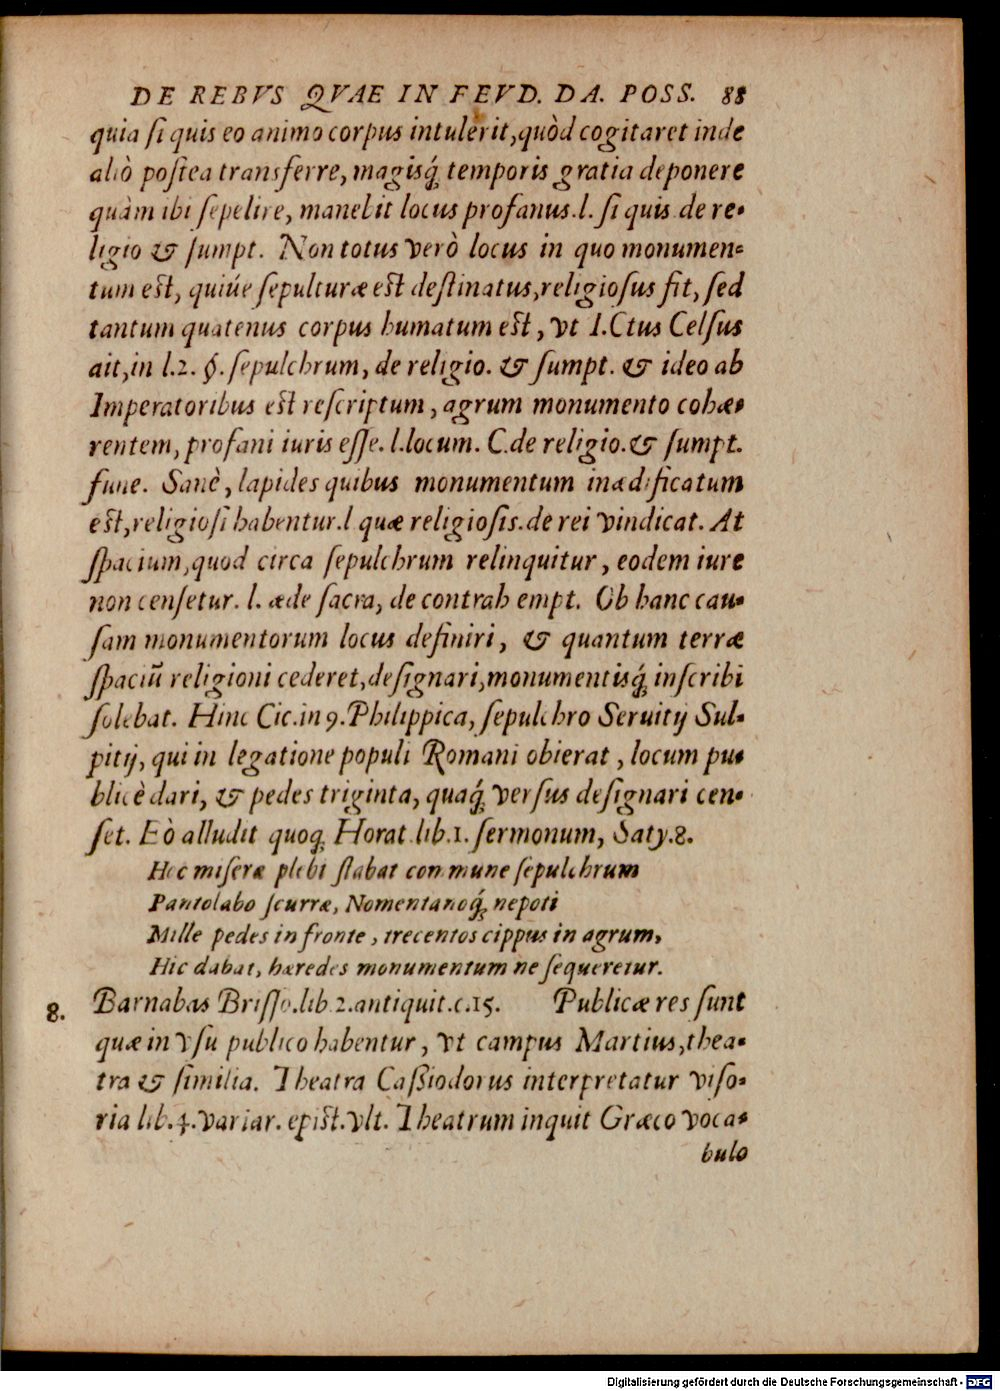 DE REBVS QVAE IN FEVD. DA. POSS. 88
quia ſi quis eo animo corpus intulerit, quòd cogitaret inde
aliò poſtea transferre, magisq́; temporis gratia deponere
quàm ibi ſepelire, manebit locus profanus. l. ſi quis de re-
ligio & ſumpt. Non totus verò locus in quo monumen-
tum eſt, quiúe ſepulturæ eſt deſtinatus, religioſus fit, ſed
tantum quatenus corpus humatum eſt, vt I.Ctus Celſus
ait, in l.2. §. ſepulchrum, de religio. & ſumpt. & ideo ab
Imperatoribus eſt reſcriptum, agrum monumento cohæ-
rentem, profani iuris eſſe. l. locum. C. de religio. & ſumpt.
fune. Sanè, lapides quibus monumentum inædificatum
eſt, religioſi habentur. l quæ religioſis. de rei vindicat. At
ſpacium, quod circa ſepulchrum relinquitur, eodem iure
non cenſetur. l. æde ſacra, de contrah empt. Ob hanc cau-
ſam monumentorum locus definiri, & quantum terræ
ſpaciũ religioni cederet, deſignari, monumentisq́; inſcribi
ſolebat. Hinc Cic. in 9. Philippica, ſepulchro Seruitij Sul-
pitij, qui in legatione populi Romani obierat, locum pu-
blicè dari, & pedes triginta, quaq́; verſus deſignari cen-
ſet. Eò alludit quoq; Horat. lib. 1. ſermonum, Saty. 8.
Hec miſeræ plebi ſtabat commune ſepulchrum
Pantolabo ſcurræ, Nomentanoq́; nepoti
Mille pedes in fronte, trecentos cippus in agrum,
Hic dabat, hæredes monumentum ne ſequeretur.
8. Barnabas Briſſo. lib 2. antiquit. c. 15. Publicæ res ſunt
quæ in vſu publico habentur, vt campus Martius, thea-
tra & ſimilia. Theatra Caßiodorus interpretatur viſo-
ria lib. 4. variar. epiſt. vlt. Theatrum inquit Græco voca-
bulo
Digitalisierung gefördert durch die Deutsche Forschungsgemeinschaft - DFG